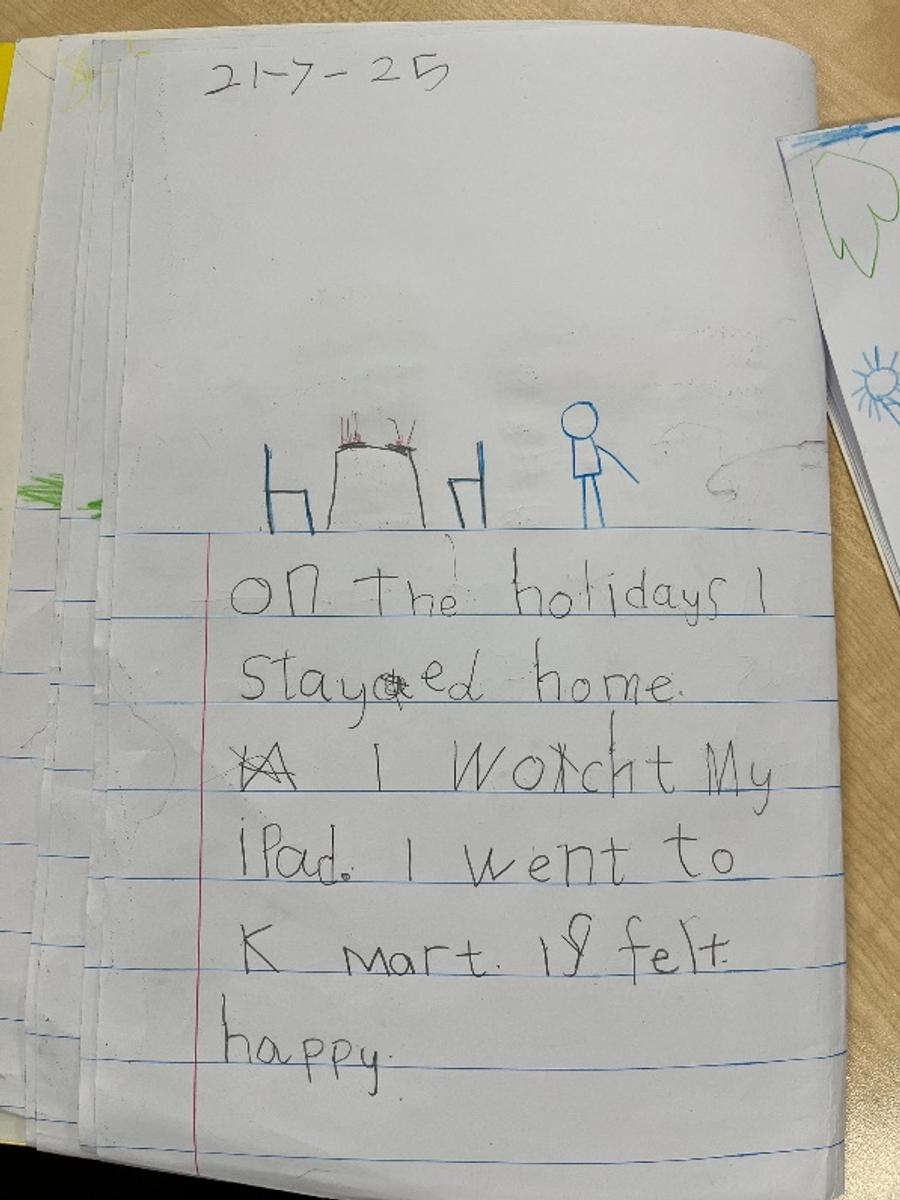 21-7-25
on the holidays I
stayed home.
I worcht My
iPad. I went to
K mart. I felt
happy.